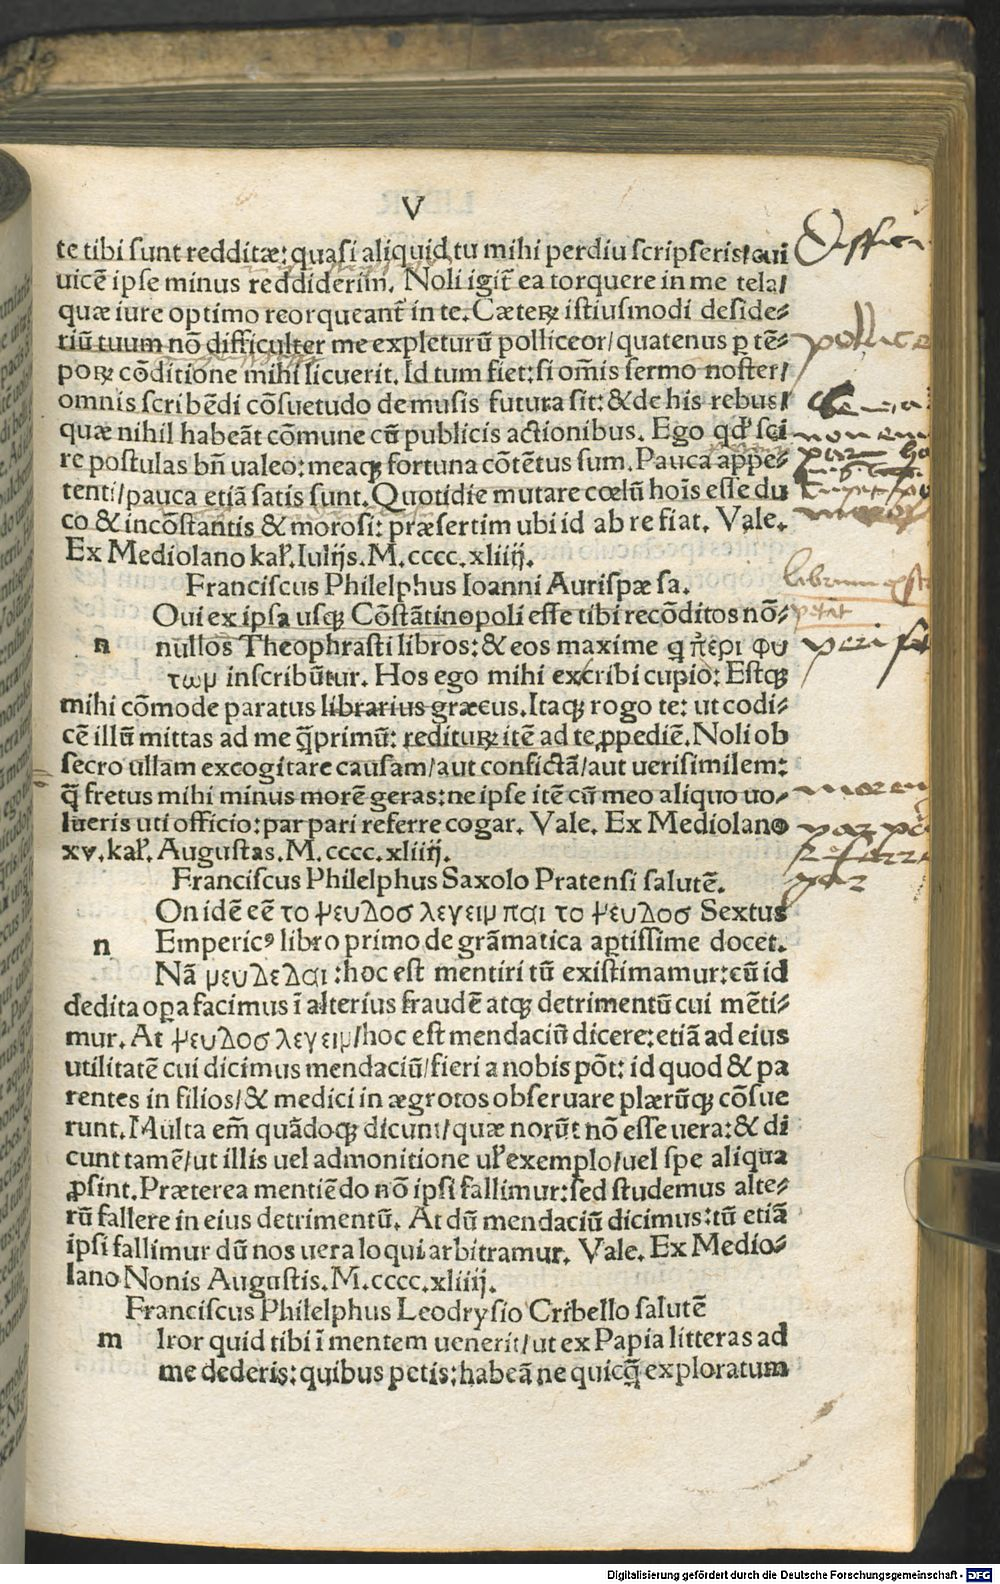 V
te tibi sunt redditæ: quasi aliquid tu mihi perdiu scripseris/cui
uicē ipse minus reddiderim. Noli igit̄ ea torquere in me tela/
quæ iure optimo reorqueant̄ in te. Cæteꝝ istiusmodi deside-
riū tuum nō difficulter me expleturū polliceor/quatenus ꝑ tē-
poꝝ cōditione mihi licuerit. Id tum fiet: si om̄is sermo noster/
omnis scribēdi cōsuetudo de musis futura sit: & de his rebus/
quæ nihil habeāt cōmune cū publicis actionibus. Ego qd' sci
re postulas bn̄ ualeo: meaqꝫ fortuna cōtētus sum. Pauca appe-
tenti/pauca etiā satis sunt. Quotidie mutare cœlū hoīs esse du
co & incōstantis & morosi: præsertim ubi id ab re fiat. Vale.
Ex Mediolano kal'. Iulijs. M. cccc. xliiij.
Franciscus Philelphus Ioanni Aurispæ sa.
Oui ex ipsa usqꝫ Cōstātinopoli esse tibi recōditos nō-
n nullos Theophrasti libros: & eos maxime q̄ περι φυ
τωμ inscribūtur. Hos ego mihi excribi cupio: Estqꝫ
mihi cōmode paratus librarius græcus. Itaqꝫ rogo te: ut codi-
cē illū mittas ad me q̄primū: redituꝝ itē ad te ꝓpediē. Noli ob
secro ullam excogitare causam/aut confictā/aut uerisimilem:
q̄ fretus mihi minus morē geras: ne ipse itē cū meo aliquo uo-
lueris uti officio: par pari referre cogar. Vale. Ex Mediolano
xv. kal'. Augustas. M. cccc. xliiij.
Franciscus Philelphus Saxolo Pratensi salutē.
On idē eē το ψευδοσ λεγειμ παι το ψευδοσ Sextus
n Empericꝰ libro primo de grāmatica aptissime docet.
Nā μευδεδαι: hoc est mentiri tū existimamur: cū id
dedita oꝑa facimus ī alterius fraudē atqꝫ detrimentū cui mēti-
mur. At ψευδοσ λεγειμ/hoc est mendaciū dicere: etiā ad eius
utilitatē cui dicimus mendaciū/fieri a nobis pōt: id quod & pa
rentes in filios/& medici in ægrotos obseruare plærūqꝫ cōsue
runt. Multa em̄ quādoqꝫ dicunt/quæ norūt nō esse uera: & di
cunt tamē/ut illis uel admonitione ul' exemplo/uel spe aliqua
ꝓsint. Præterea mentiēdo nō ipsi fallimur: sed studemus alte-
rū fallere in eius detrimentū. At dū mendaciū dicimus: tū etiā
ipsi fallimur dū nos uera loqui arbitramur. Vale. Ex Medio-
lano Nonis Augustis. M. cccc. xliiij.
Franciscus Philelphus Leodrysio Cribello salutē
m Iror quid tibi ī mentem uenerit/ut ex Papia litteras ad
me dederis: quibus petis: habeā ne quicq̄ exploratum
Digitalisierung gefördert durch die Deutsche Forschungsgemeinschaft - DFG